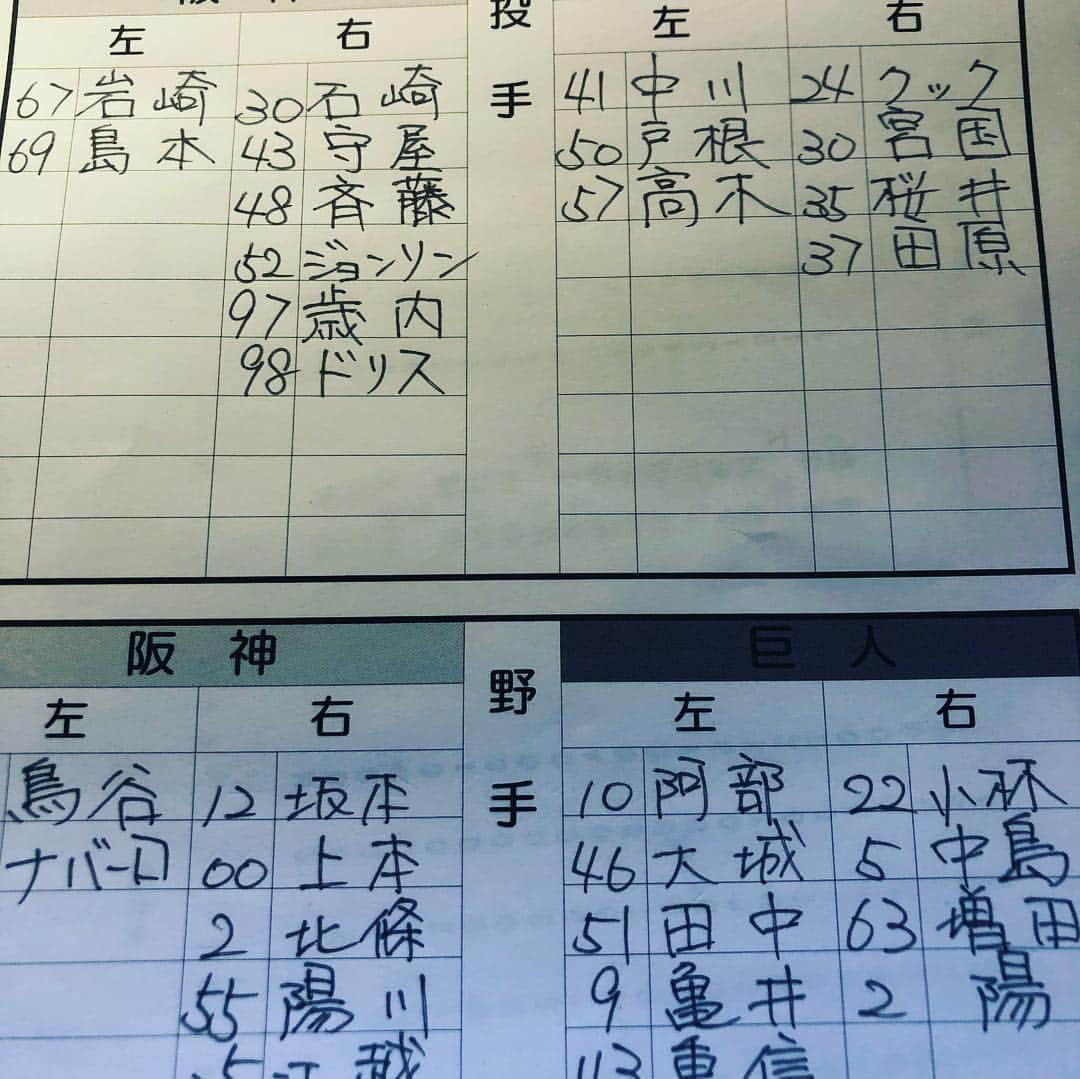 阪神 投手
左 右 左 右
67 岩崎 30 石崎 41 中川 24 クック
69 島本 43 守屋 50 戸根 30 宮国
48 斉藤 57 高木 35 桜井
52 ジョンソン 37 田原
97 歳内
98 ドリス
阪神 野手 巨人
左 右 左 右
鳥谷 12 坂本 10 阿部 22 小林
ナバーロ 00 上本 46 大城 5 中島
2 北條 51 田中 63 増田
55 陽川 9 亀井 2 陽
5 江越 113 重信